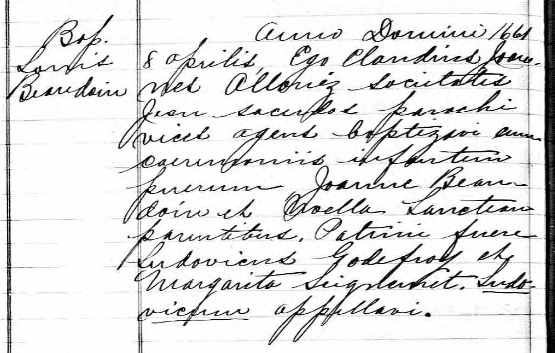 Bap.
Louis
Beaudoin
Anno Domini 1661
8 aprilis, Ego Claudius Joan-
nes Allouez societatis
Jesu sacerdos parochi
vices agens baptizavi cum
caeremoniis infantem
puerum Joanne Beau-
doin et Noella Lanctean
parentibus. Patrini fuere
Ludovicus Godefroy et
Margarita Seigneuret. Ludo-
vicum appellavi.